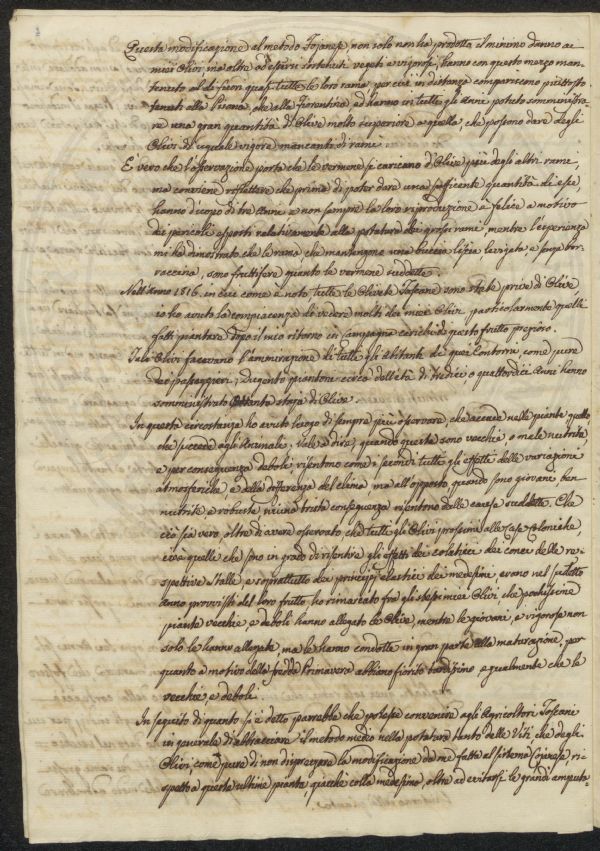 Questa modificazione al metodo Pojanese, non solo non ha prodotta il minimo danno ai
miei Olivi ma oltre ad essersi sostenuti vegeti e vigorosi, hanno con questo mezzo man-
tenuto al di fuori quasi tutte le loro rame per cui in distanza compariscono piuttosto
tenuti alla Pisana, che alla Fiorentina ed hanno in tutti gli Anni potuto somministra-
re una gran quantità d'Olive molto superiore a quella, che possono dare degli
Olivi di uguale vigore mancanti di rame.
E vero che l'osservazione porta che le vermene si caricano d'Olive più degli altri rami,
ma conviene riflettere che prima di poter dare una sufficente quantità di esse,
hanno d'uopo di tre Anni, e non sempre la loro riproduzione è felice a motivo
dei pericoli esposti relativamente alla potatura dei grossi rami, mentre l'esperienza
mi ha dimostrato che le rame, che mantengono una buccia liscia levigata, e senza bor-
raccina, sono fruttifere quanto le vermene suddette.
Nell'Anno 1816. in cui come è noto tutte le Olivete Toscane sono state prive di Olive
io ho avuto la compiacenza di vedere molti dei miei Olivi, particolarmente quelli
fatti piantare dopo il mio ritorno in campagna carichi di questo frutto prezioso.
Tali Olivi facevano l'ammirazione di tutti gli Abitanti de quei Contorni, come pure
dei passeggieri; dugento piantoni circa dell'età di tredici o quattordici Anni hanno
somministrato ottanta staja di Olive.
In questa circostanza ho avuto luogo di sempre più osservare, che accade nelle piante quello,
che succede agli Animali; vale a dire, quando queste sono vecchie, o male nutrite,
e per conseguenza deboli, risentono come i secondi tutti gli effetti delle variazioni
atmosferiche, e della differenza del clima, ma all'opposto quando sono giovani, ben
nutrite e robuste, niuna trista conseguenza risentono dalle cause suddette. Che
ciò sia vero, oltre di avere osservato che tutti gli Olivi prossimi alle Case Coloniche,
cioè quelle che sono in grado di risentire gli effetti dei colaticci dei conci delle re-
spettive stalle, e soprattutto dei principj elastici dei medesimi, erano nel suddetto
Anno provvisti del loro frutto, ho rimarcato fra gli stessi miei Olivi, che pochissime
piante vecchie e deboli hanno allegato le Olive, mentre le giovani, e vigorose non
solo le hanno allegate, ma le hanno condotte in gran parte alla maturazione, per
quanto a motivo della fredda Primavera abbiano fiorito tardissimo, egualmente che le
vecchie, e deboli.
In seguito di quanto si è detto, parrebbe che potesse convenire agli Agricoltori Toscani
in generale d'abbracciare il metodo medio nella potatura tanto delle Viti che degli
Olivi, come pure di non disprezzare la modificazione da me fatta al sistema Pojanese, ri-
spetto a queste ultime piante, giacchè colla medesima, oltre ad evitarsi le grandi amputa-